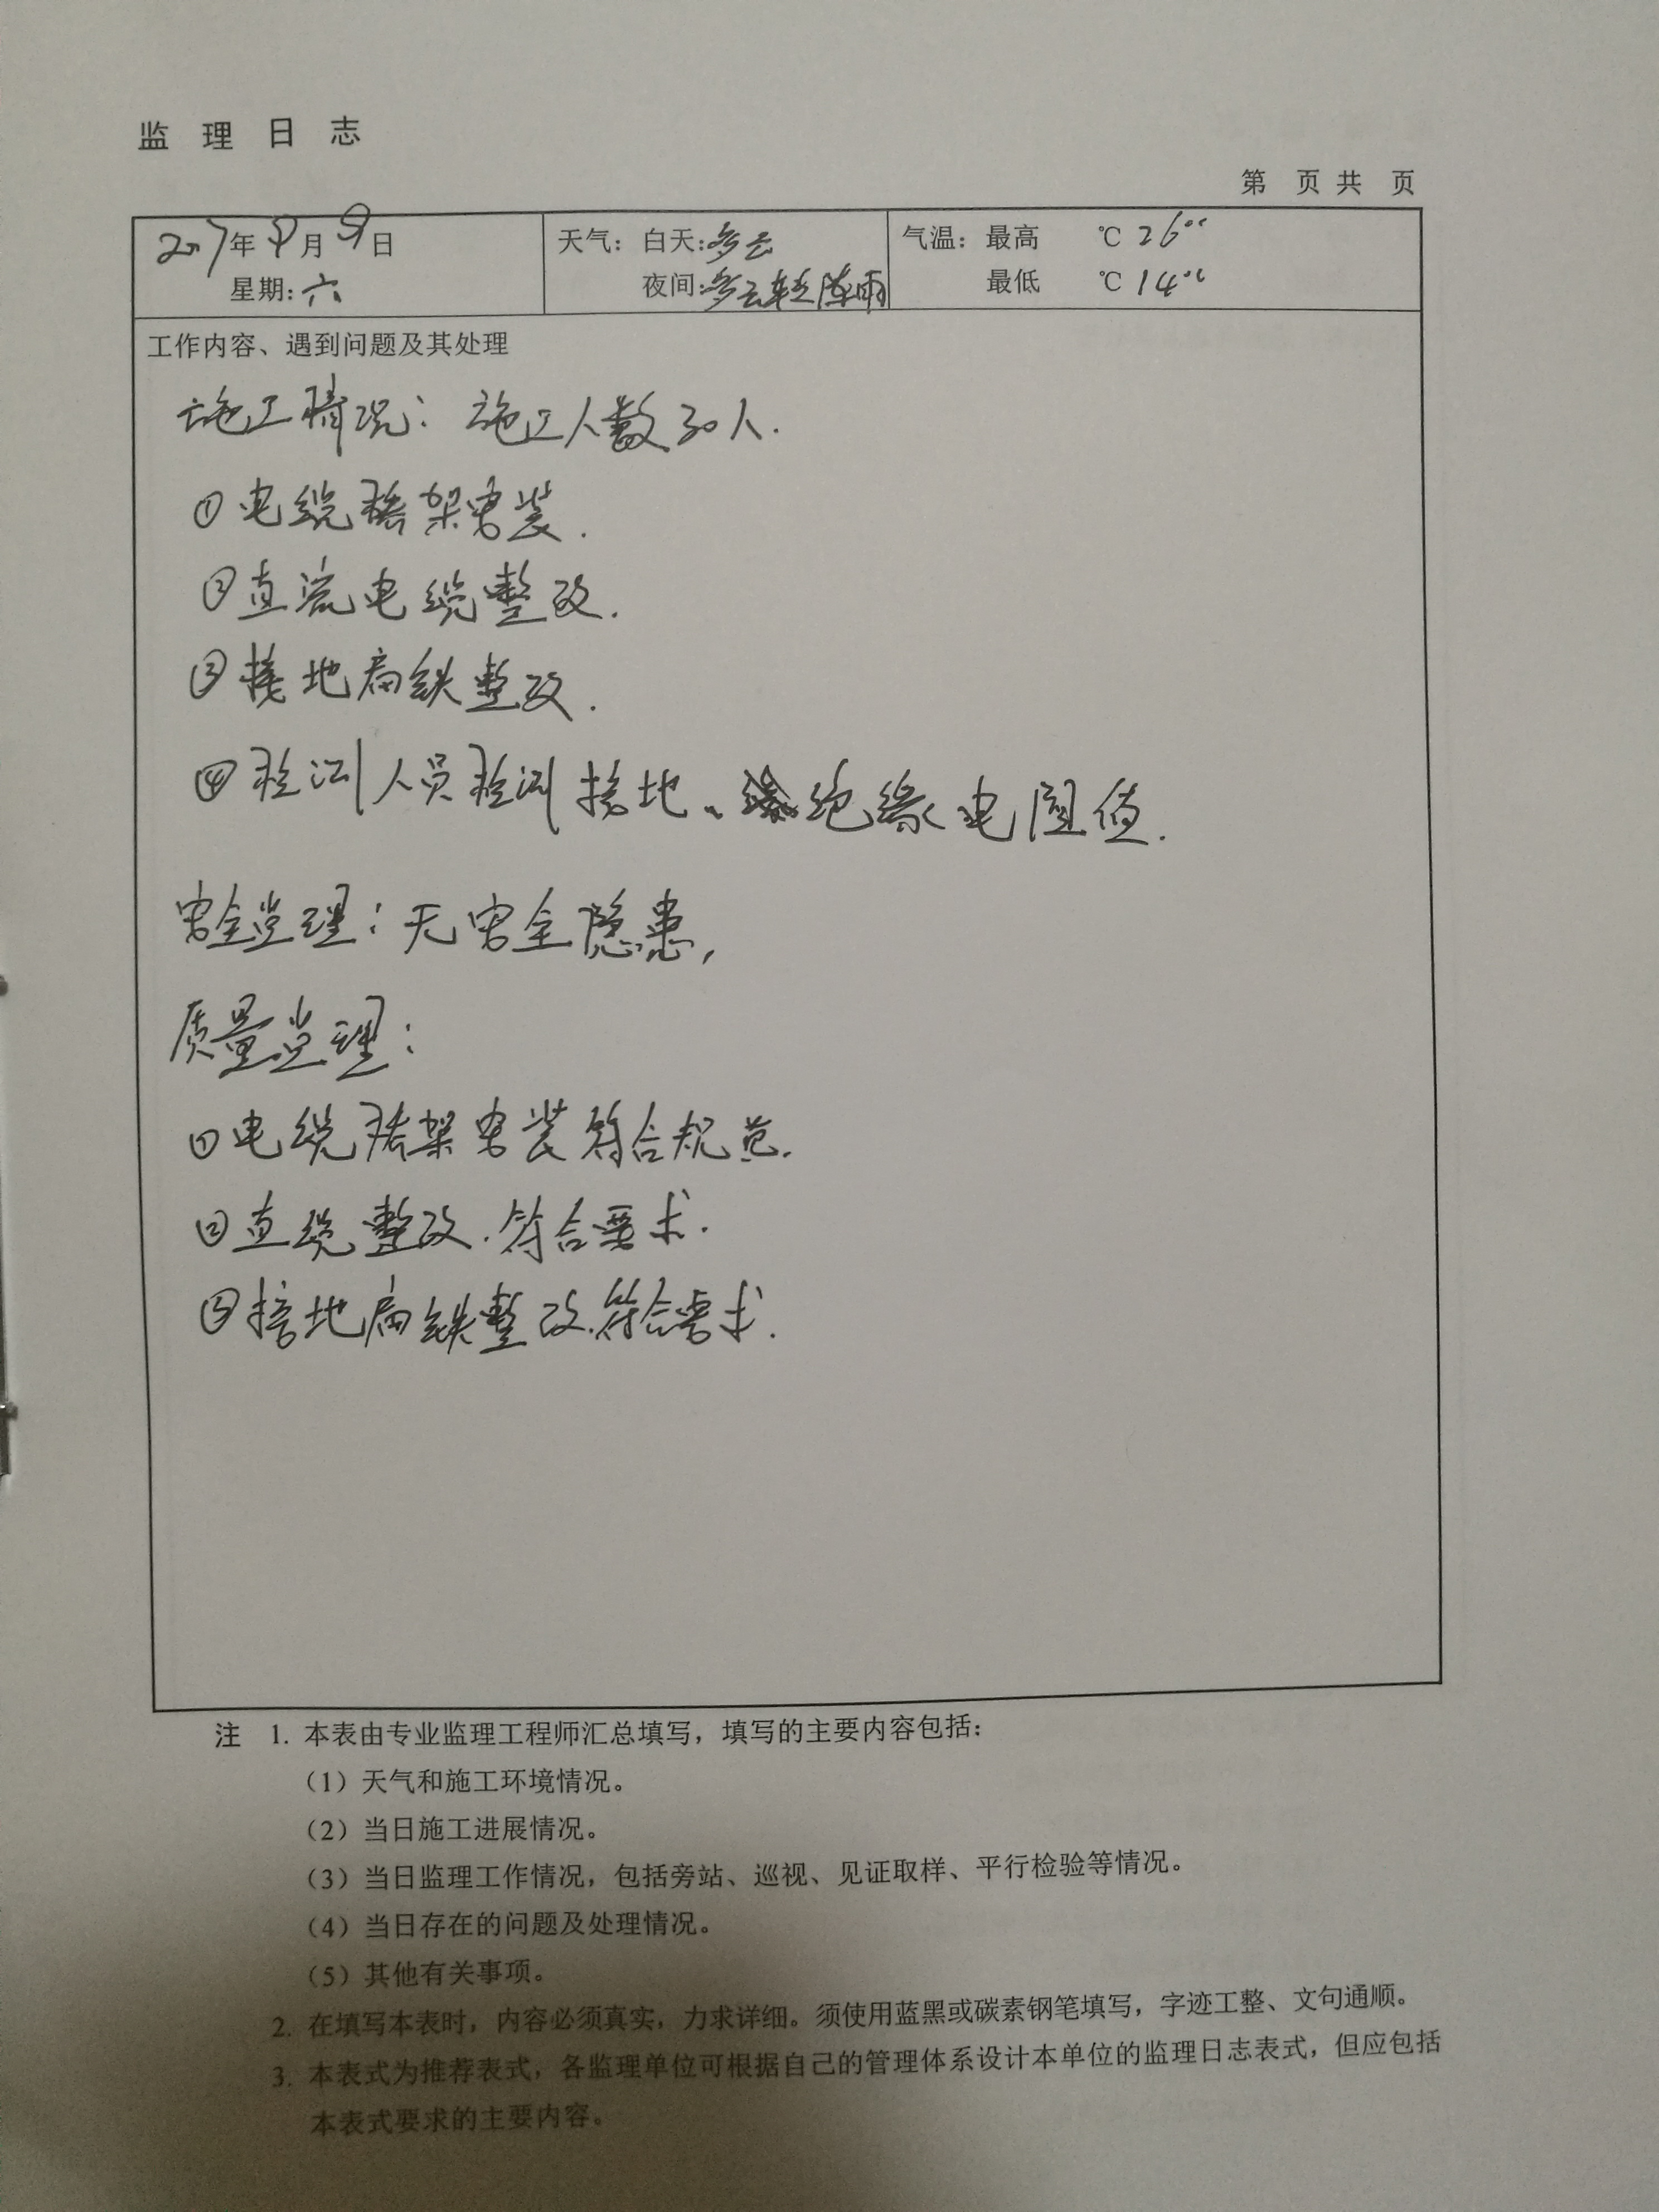 监理日志
第 页 共 页
2017年9月9日 天气：白天：多云 气温：最高 ℃ 26°°
星期：六 夜间：多云转阵雨 最低 ℃ 14°°
工作内容、遇到问题及其处理
施工情况：施工人数30人.
①电缆桥架安装.
②直流电缆整改.
③接地扁铁整改.
④检测人员检测接地、绝缘电阻值.
安全监理：无安全隐患,
质量监理：
①电缆桥架安装符合规范.
②直缆整改.符合要求.
③接地扁铁整改.符合要求.
注 1. 本表由专业监理工程师汇总填写，填写的主要内容包括：
（1）天气和施工环境情况。
（2）当日施工进展情况。
（3）当日监理工作情况，包括旁站、巡视、见证取样、平行检验等情况。
（4）当日存在的问题及处理情况。
（5）其他有关事项。
2. 在填写本表时，内容必须真实，力求详细。须使用蓝黑或碳素钢笔填写，字迹工整、文句通顺。
3. 本表式为推荐表式，各监理单位可根据自己的管理体系设计本单位的监理日志表式，但应包括
本表式要求的主要内容。